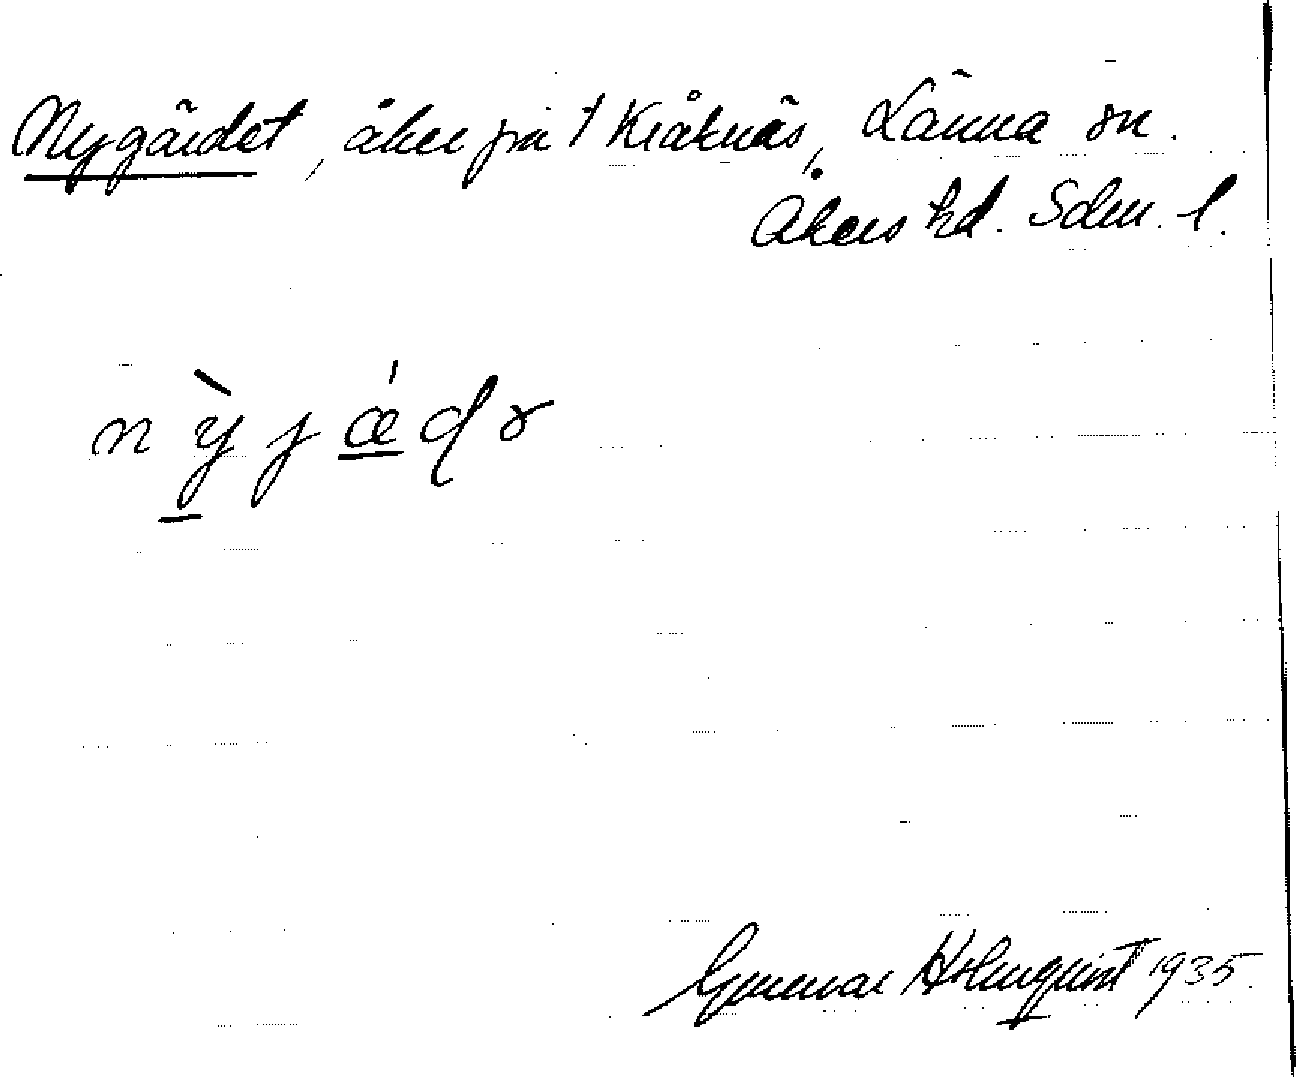 Nygärdet, åker på 1 Kråknäs, Länna sn.
Åkers hd. Sdm. l.
nỳjǽḍɤ
Gunnar Holmquist 1935.